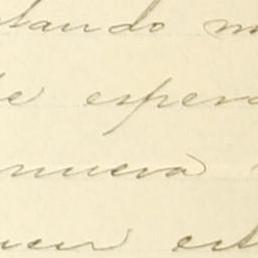 tando m
e espera
nueva
uer est